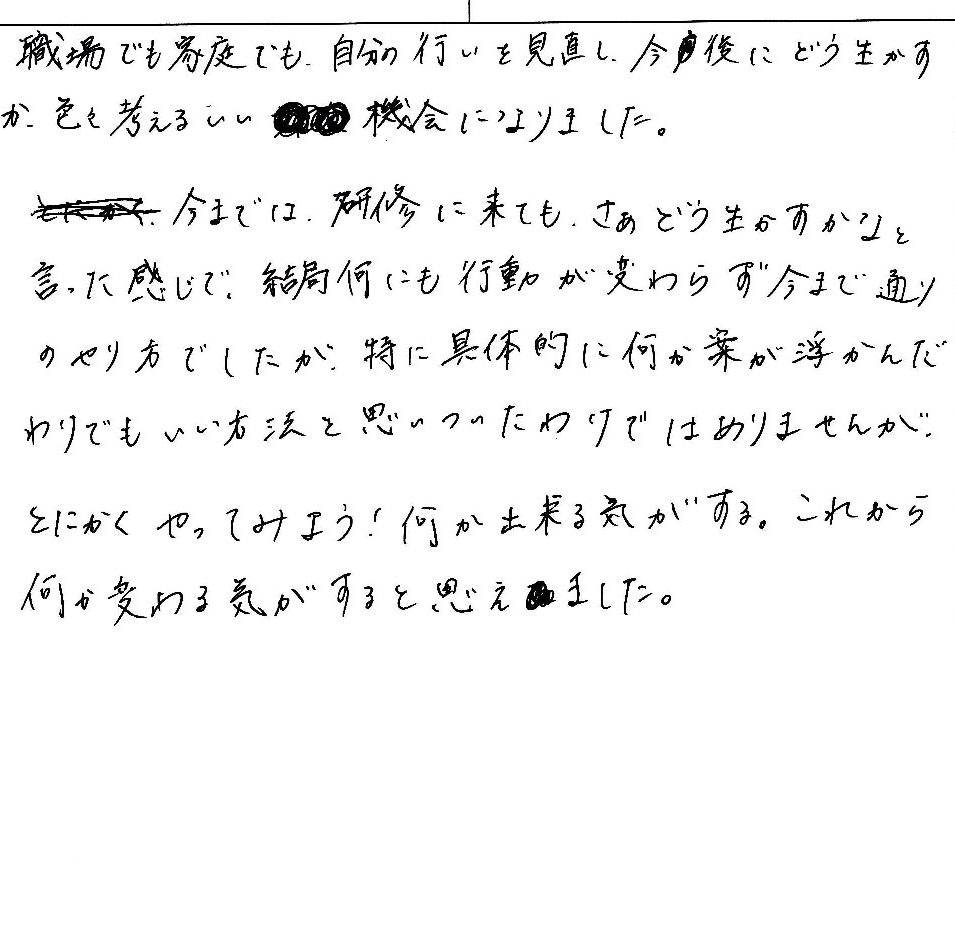 職場でも家庭でも、自分の行いを見直し、今後にどう生かす
か、色々考えるいい機会になりました。
今までは、研修に来ても、さぁどう生かすかなと
言った感じで、結局何にも行動が変わらず今まで通り
のやり方でしたが、特に具体的に何か案が浮かんだ
わりでもいい方法と思いついたわけではありませんが、
とにかくやってみよう!何か出来る気がする。これから
何か変わる気がすると思えました。